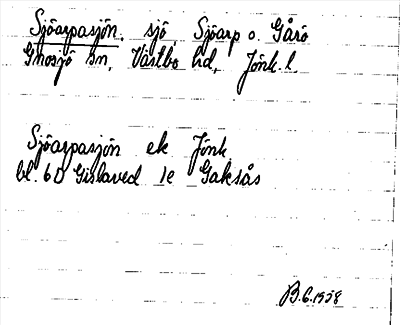 Sjöarpasjön. sjö Sjöarp o. Gårö
Gnosjö sn, Västbo hd, Jönk. l.
Sjöarpasjön ek Jönk
bl. 6D Gislaved 1e Gaksås
B.G. 1958